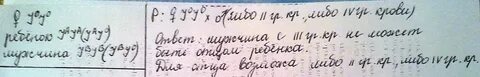 ♀ J⁰J⁰
ребенок JᴬJᴬ(JᴬJ⁰)
мужчина JᴮJᴮ(JᴮJ⁰)
P: ♀ J⁰J⁰ × ♂(либо II гр. кр., либо IV гр. крови)
Ответ: мужчина с III гр. кр не может
быть отцом ребенка.
Для отца возможна либо II гр. кр., либо IV гр. кр.